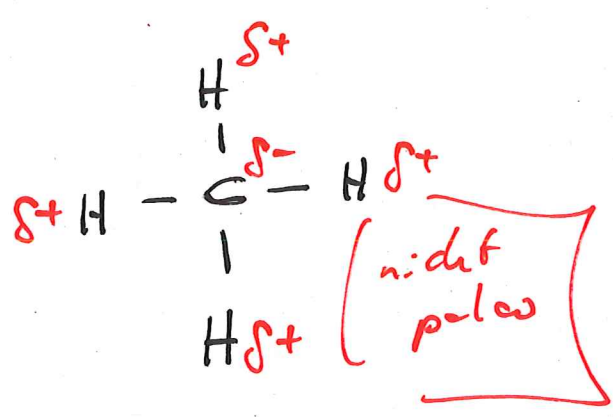 H δ+
δ+ H – C δ- – H δ+
H δ+
nicht
polar